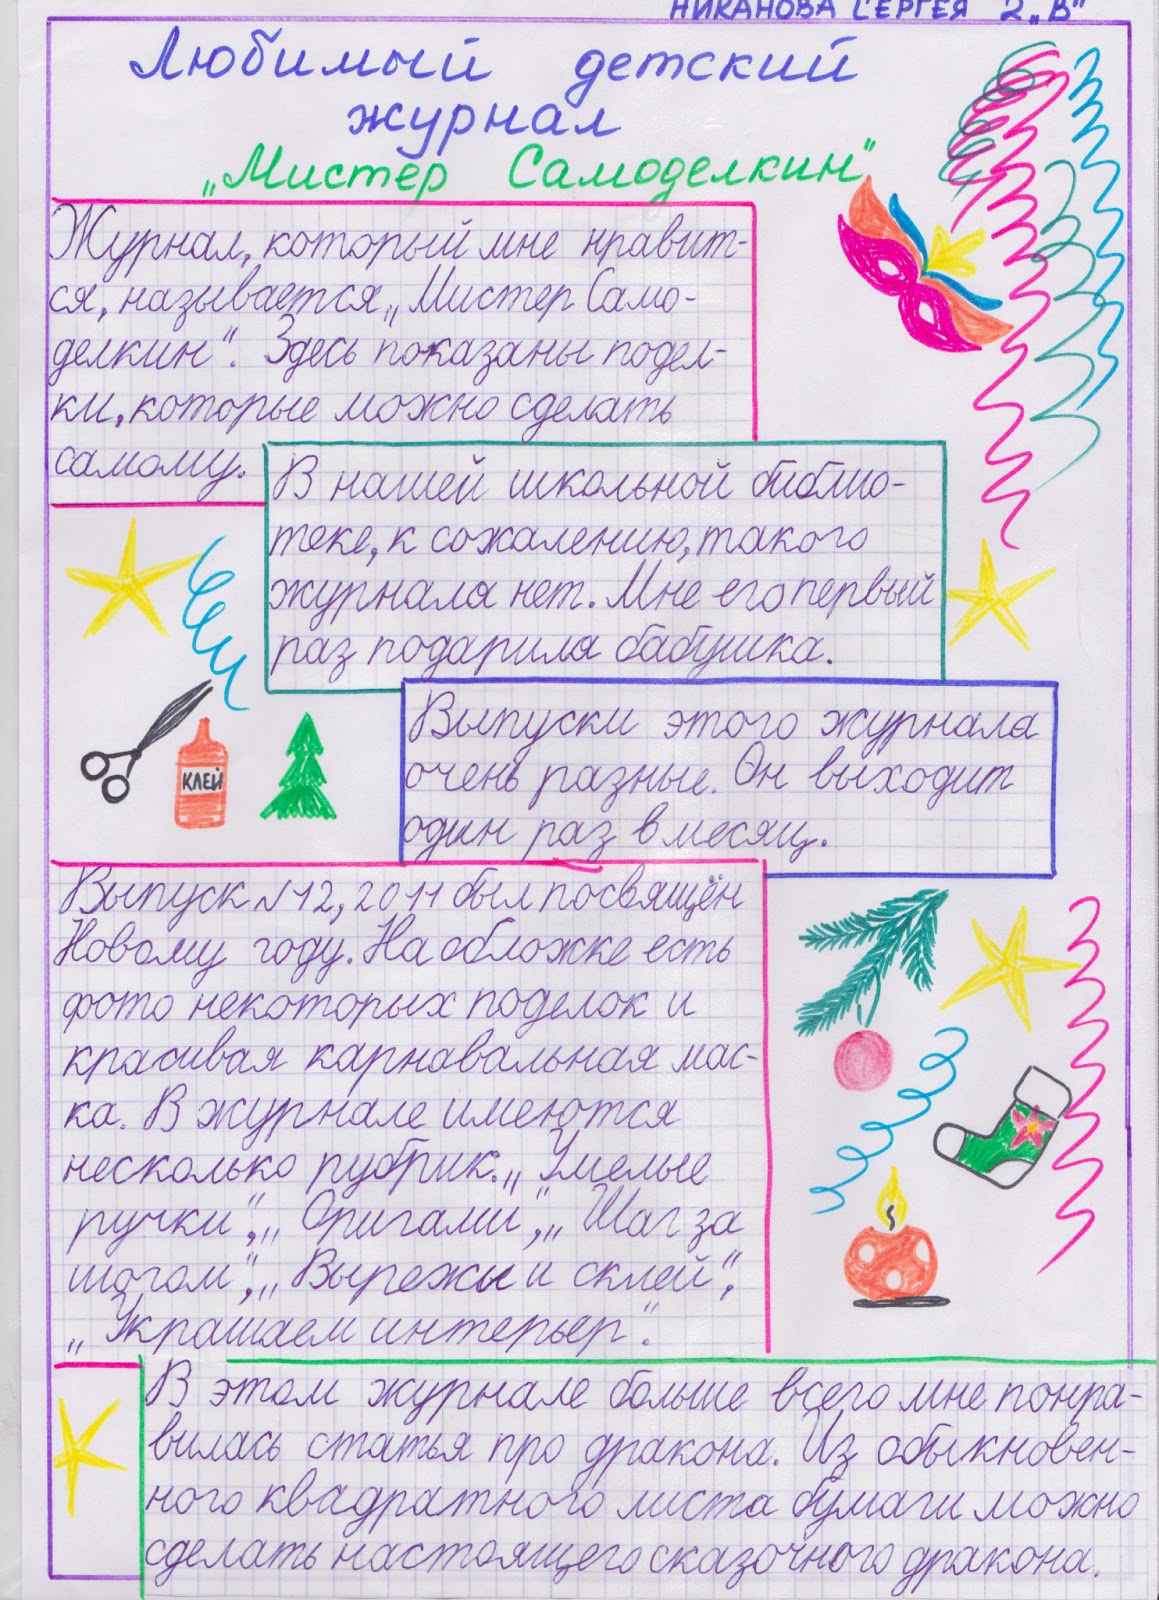 НИКАНОВА СЕРГЕЯ 2 „В"
Любимый детский
журнал
„Мистер Самоделкин"
Журнал, который мне нравит-
ся, называется „Мистер Само-
делкин". Здесь показаны подел-
ки, которые можно сделать
самому.
В нашей школьной библио-
теке, к сожалению, такого
журнала нет. Мне его первый
раз подарила бабушка.
КЛЕЙ
Выпуски этого журнала
очень разные. Он выходит
один раз в месяц.
Выпуск №12, 2011 был посвящён
Новому году. На обложке есть
фото некоторых поделок и
красивая карнавальная мас-
ка. В журнале имеются
несколько рубрик. „Умелые
ручки", „Оригами", „Шаг за
шогом", „Вырежы и склей",
„Украшаем интерьер".
В этом журнале больше всего мне понра-
вилась статья про дракона. Из обыкновен-
ного квадратного листа бумаги можно
сделать настоящего сказочного дракона.